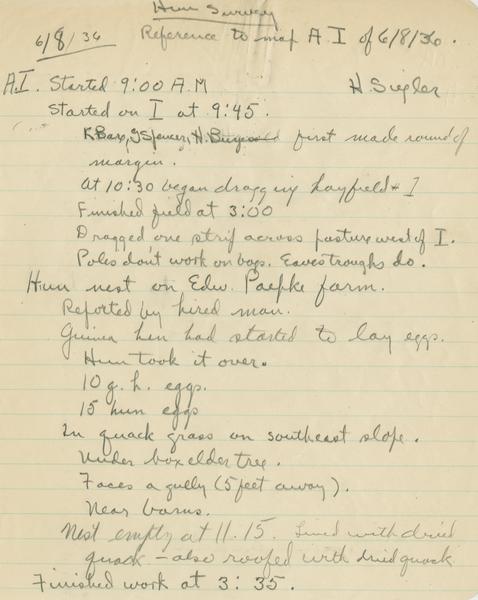 Hun Survey
6/8/36 Reference to map A I of 6/8/36.
A I. Started 9:00 A.M H. Siegler
Started on I at 9:45.
K Barx, J Spencer, H. first made round of
margin.
At 10:30 began dragging hayfield + I
Finished field at 3:00
Dragged one strip across pasture west of I.
Poles don't work on bogs. Eavestroughs do.
Hun nest on Edw. Paepke farm.
Reported by hired man.
Guinea hen had started to lay eggs.
Hun took it over.
10 g. h. eggs.
15 hun eggs
In quack grass on southeast slope.
Under box elder tree.
Faces a gully (5 feet away).
Near barns.
Nest empty at 11.15. Lined with dried
quack - also roofed with dried quack
Finished work at 3:35.